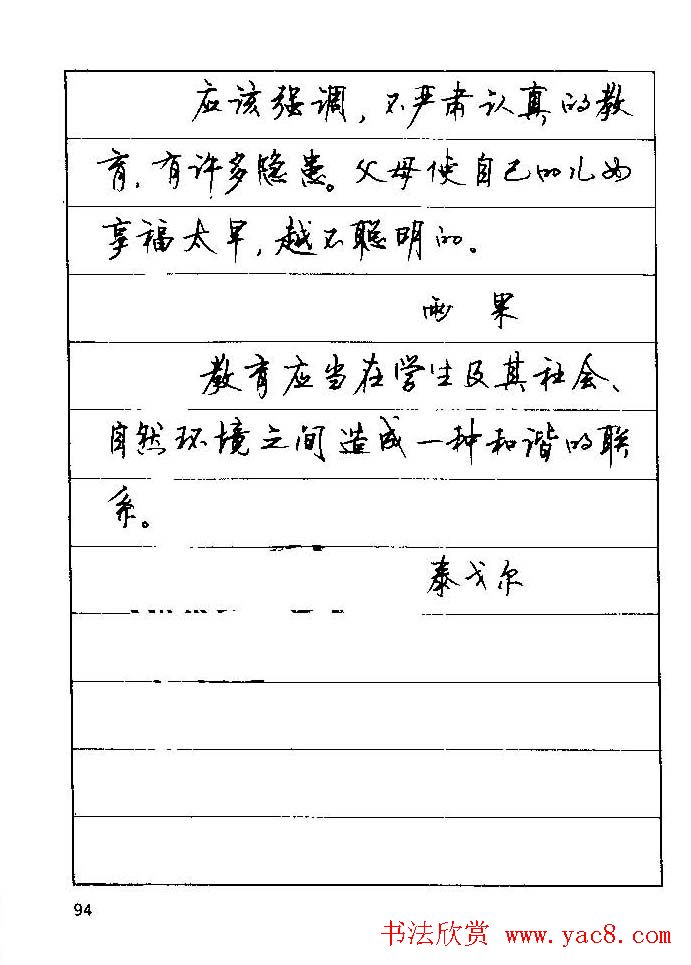 应该强调，不严肃认真的教
育，有许多隐患。父母使自己的儿女
享福太早，越不聪明的。
雨果
教育应当在学生及其社会、
自然环境之间造成一种和谐的联
系。
泰戈尔
94
书法欣赏 www.yac8.com